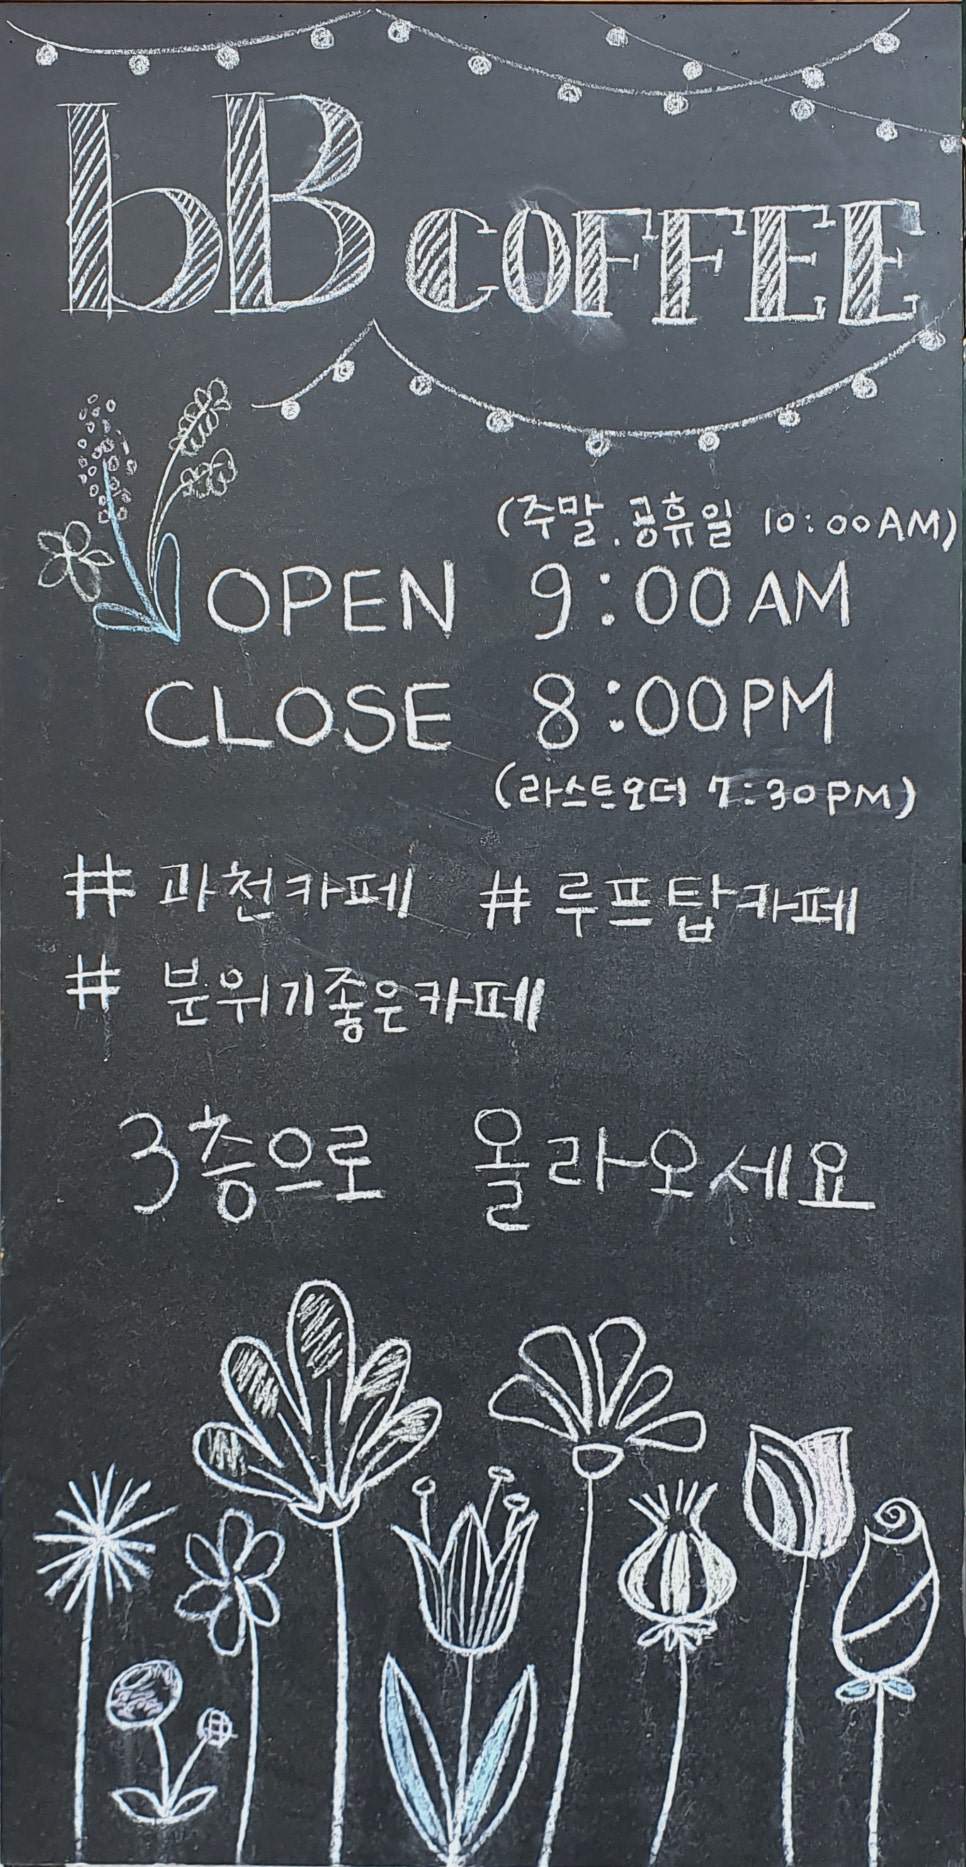 bB COFFEE
(주말.공휴일 10:00AM)
OPEN 9:00AM
CLOSE 8:00PM
(라스트오더 7:30PM)
# 과천카페 # 루프탑카페
# 분위기좋은카페
3층으로 올라오세요